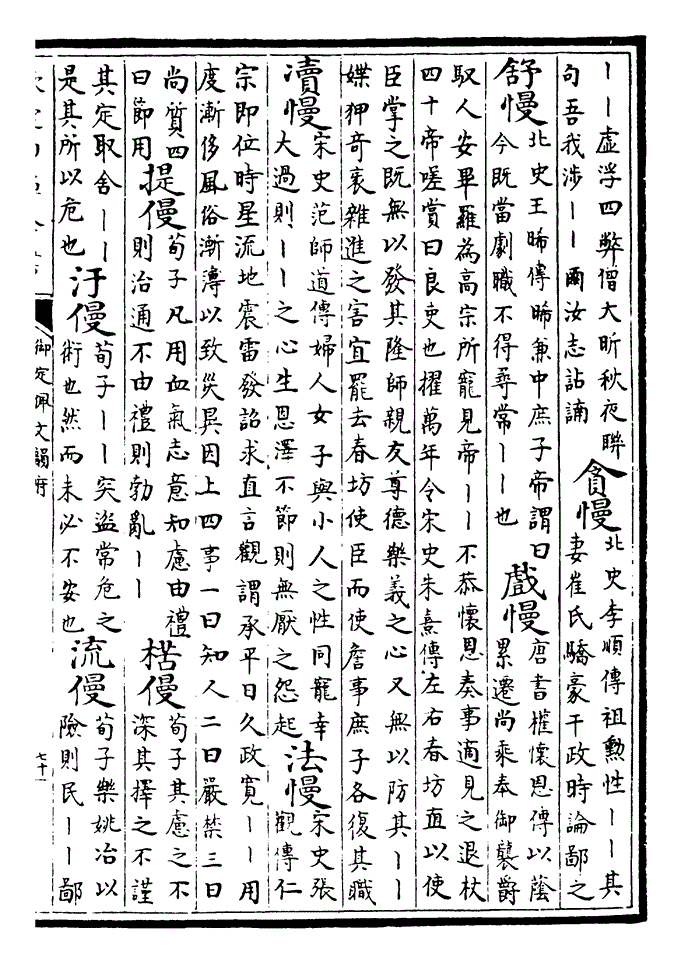 丨丨虛浮四弊僧大昕秋夜聯
句吾我涉丨丨爾汝志詀諵
貪慢
北史李順傳祖勳性丨丨其
妻崔氏驕豪干政時論鄙之
舒慢
北史王晞傳晞兼中庶子帝謂曰
今既當劇職不得尋常丨丨也
戲慢
唐書權懷恩傳以蔭
累遷尚乘奉御襲爵
馭人安畢羅為高宗所寵見帝丨丨不恭懷恩奏事適見之退杖
四十帝嗟賞曰良吏也擢萬年令宋史朱熹傳左右春坊直以使
臣掌之既無以發其隆師親友尊德樂義之心又無以防其丨丨
媟狎奇衺雜進之害宜罷去春坊使臣而使詹事庶子各復其職
瀆慢
宋史范師道傳婦人女子與小人之性同寵幸
大過則丨丨之心生恩澤不節則無厭之怨起
法慢
宋史張
觀傳仁
宗即位時星流地震雷發詔求直言觀謂承平日久政寬丨丨用
度漸侈風俗漸薄以致災異因上四事一曰知人二曰嚴禁三曰
尚質四
曰節用
提僈
荀子凡用血氣志意知慮由禮
則治通不由禮則勃亂丨丨
楛僈
荀子其慮之不
深其擇之不謹
其定取舍丨丨
是其所以危也
汙僈
荀子丨丨突盜常危之
術也然而未必不安也
流僈
荀子樂姚冶以
險則民丨丨鄙
御定佩文韻府